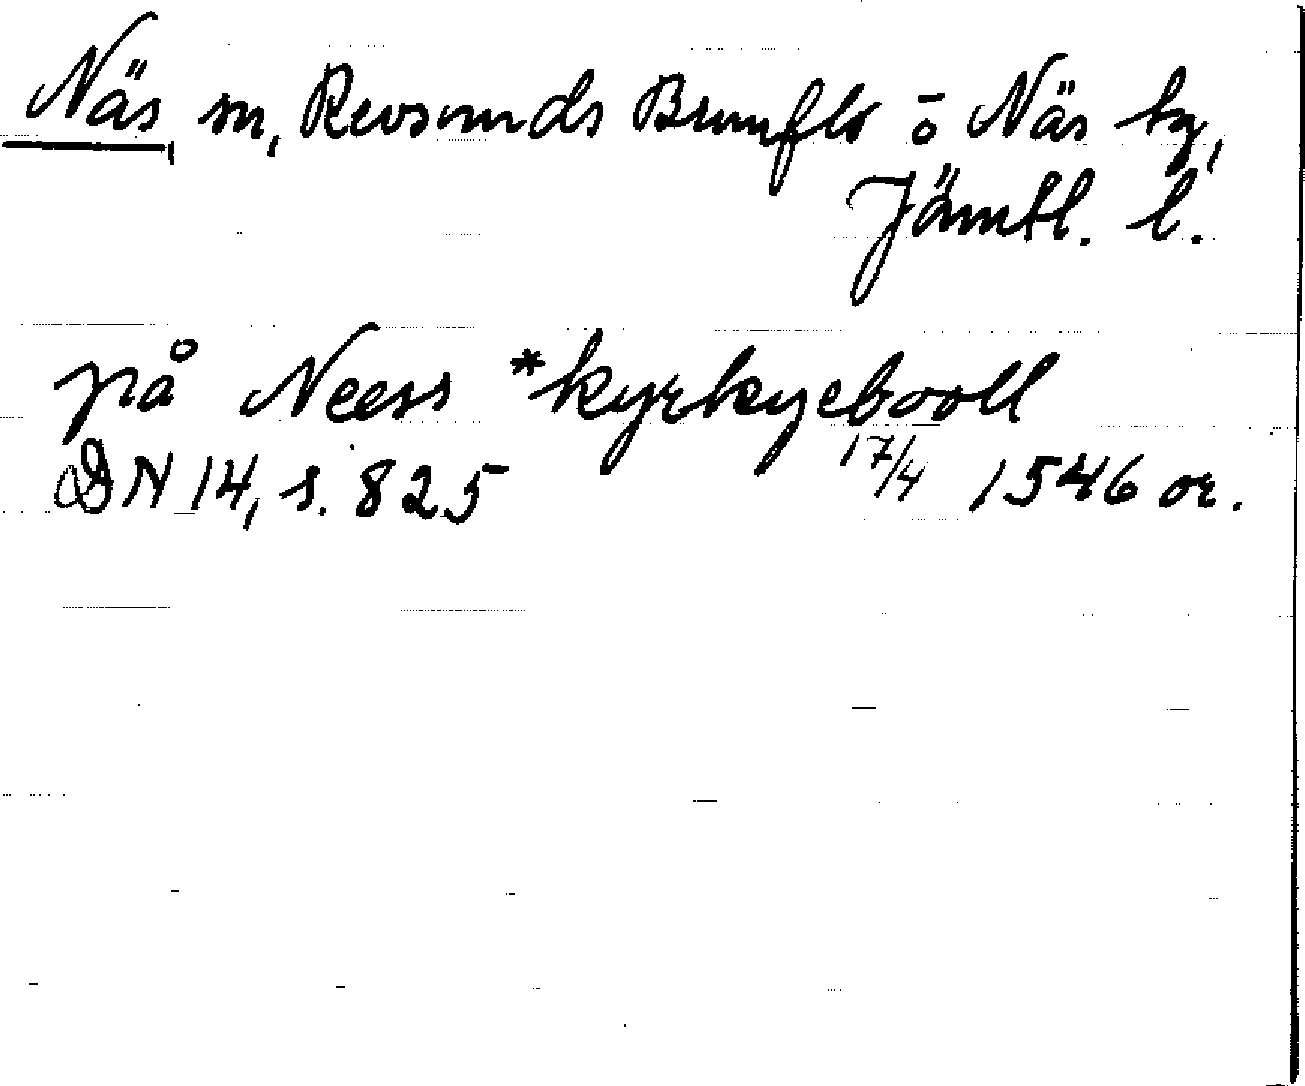 Näs, sn, Revsunds Brunflo o Näs hg,
Jämtl. l.
på Neess *kyrkyebooll
DN 14, s. 825 17/4 1546 or.